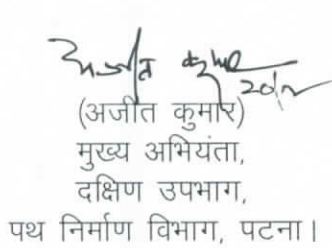 अजीत कुमार
20/12
(अजीत कुमार)
मुख्य अभियंता,
दक्षिण उपभाग,
पथ निर्माण विभाग, पटना।